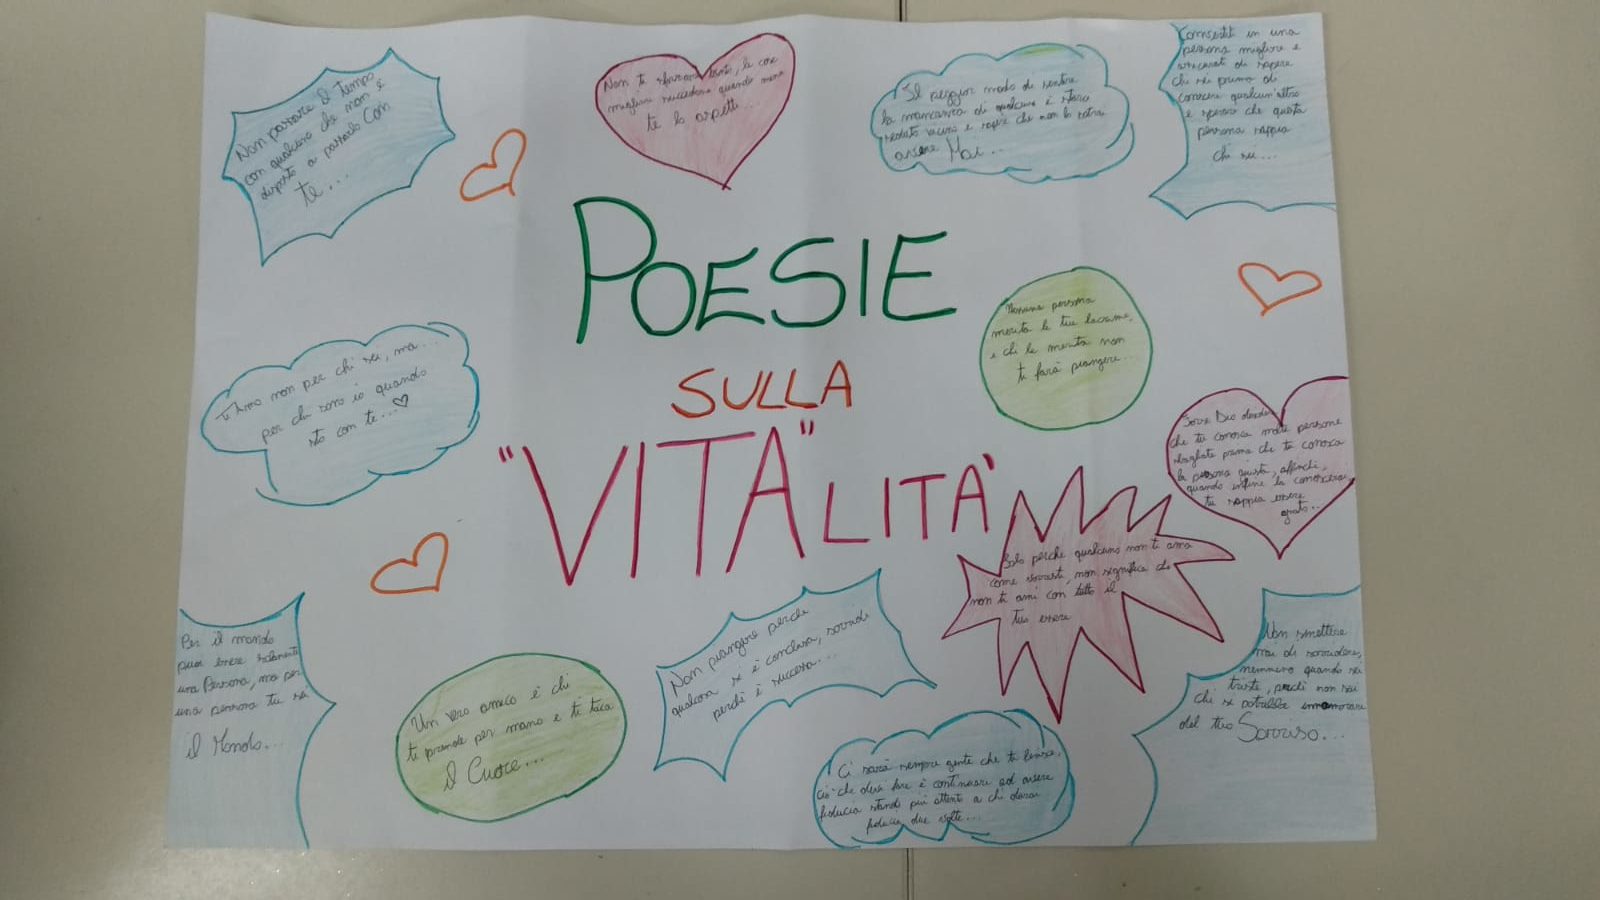 Non passare il Tempo
con qualcuno che non è
disposto a passarlo Con
te...
Non ti sforzare tanto, le cose
migliori succedono quando meno
te lo aspetti...
Il peggior modo di sentire
la mancanza di qualcuno è stare
seduto vicino e sapere che non lo potrai
avere Mai...
in una
persona migliore e
assicurati di sapere
chi sei prima di
conoscere qualcun'altro
e sperare che questa
persona sappia
chi sei...
POESIE
SULLA
"VITA"LITÀ
Nessuna persona
merita le tue lacrime,
e chi le merita non
ti farà piangere...
Ti Amo non per chi sei, ma...
per chi sono io quando
sto con te...
Forse Dio desidera
che tu conosca molte persone
sbagliate prima che tu conosca
la persona giusta, affinchè,
quando infine la conoscerai
tu sappia essere
grato...
Solo perchè qualcuno non ti ama
come vorresti, non significa che
non ti ami con tutto il
suo essere
Per il mondo
puoi essere solamente
una Persona, ma per
una persona tu sei
il Mondo...
Un vero amico è chi
ti prende per mano e ti tocca
il Cuore...
Non piangere perchè
qualcosa si è conclusa, sorridi
perchè è successa...
Ci sarà sempre gente che ti
ciò che devi fare è continuare ad avere
fiducia stando più attento a chi darai
fiducia due volte...
Non smettere
mai di sorridere,
nemmeno quando sei
triste, perchè non sai
chi si potrebbe innamorare
del tuo Sorriso...